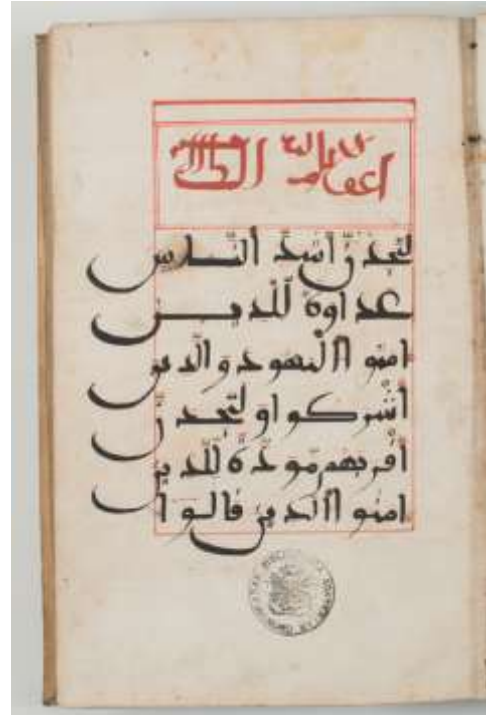 لتجدنّ أشدّ النّاس
عداوة لّلذين
امنوا اليهود والّذين
أشركوا ولتجدنّ
أقربهم مّودّة لّلذين
امنوا الذين قالوا